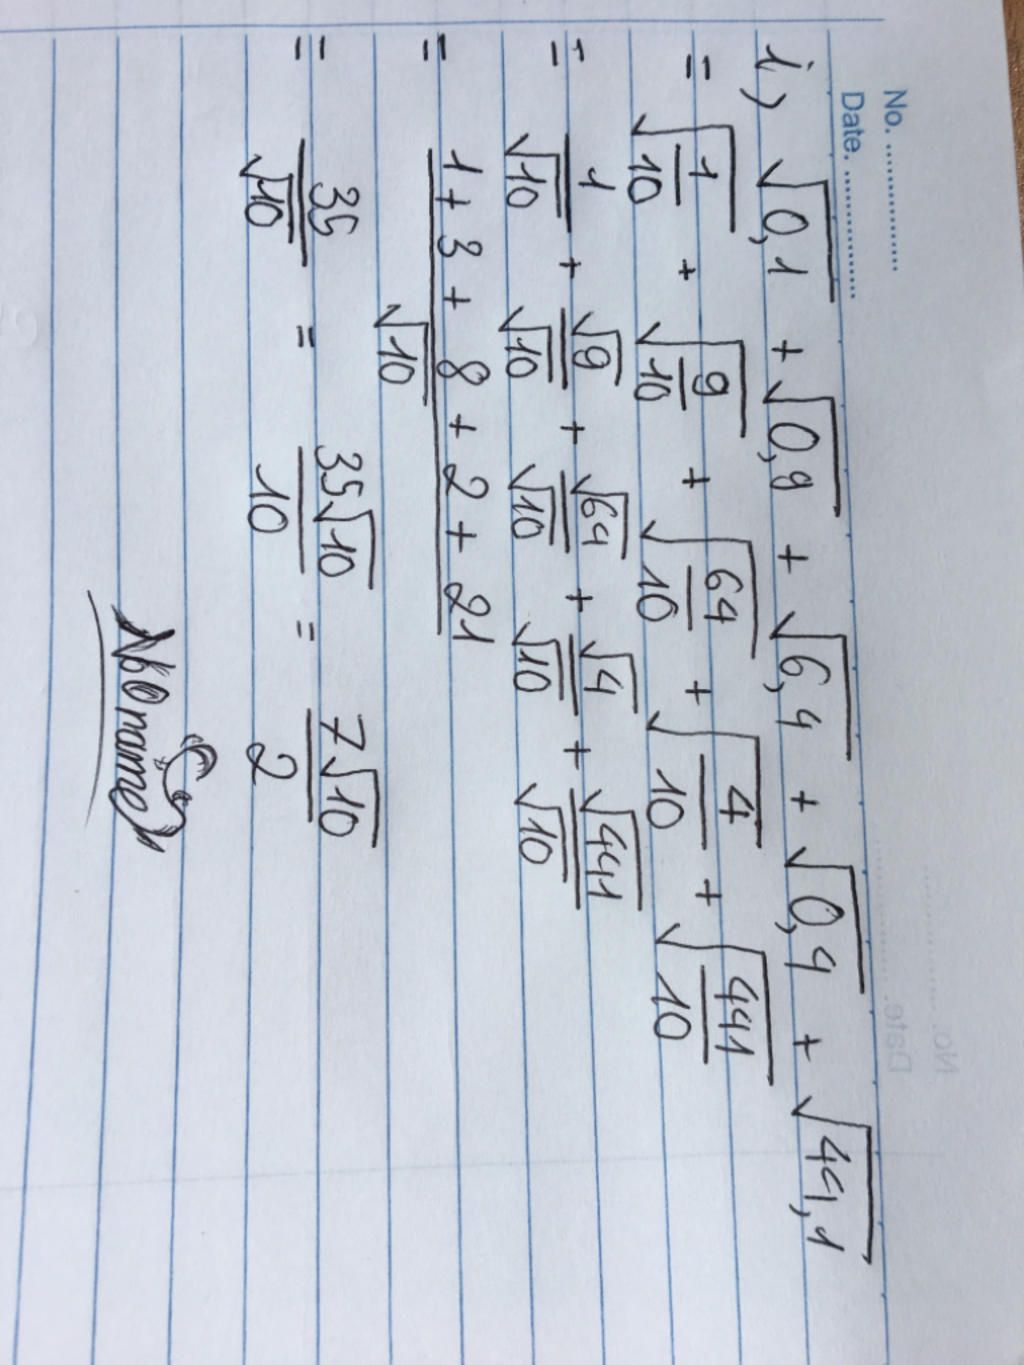 No. ................
Date. ................
i) √0,1 + √0,9 + √6,4 + √0,4 + √44,1
= √(1/10) + √(9/10) + √(64/10) + √(4/10) + √(441/10)
= 1/√10 + √9/√10 + √64/√10 + √4/√10 + √441/√10
= (1 + 3 + 8 + 2 + 21)/√10
= 35/√10 = 35√10/10 = 7√10/2